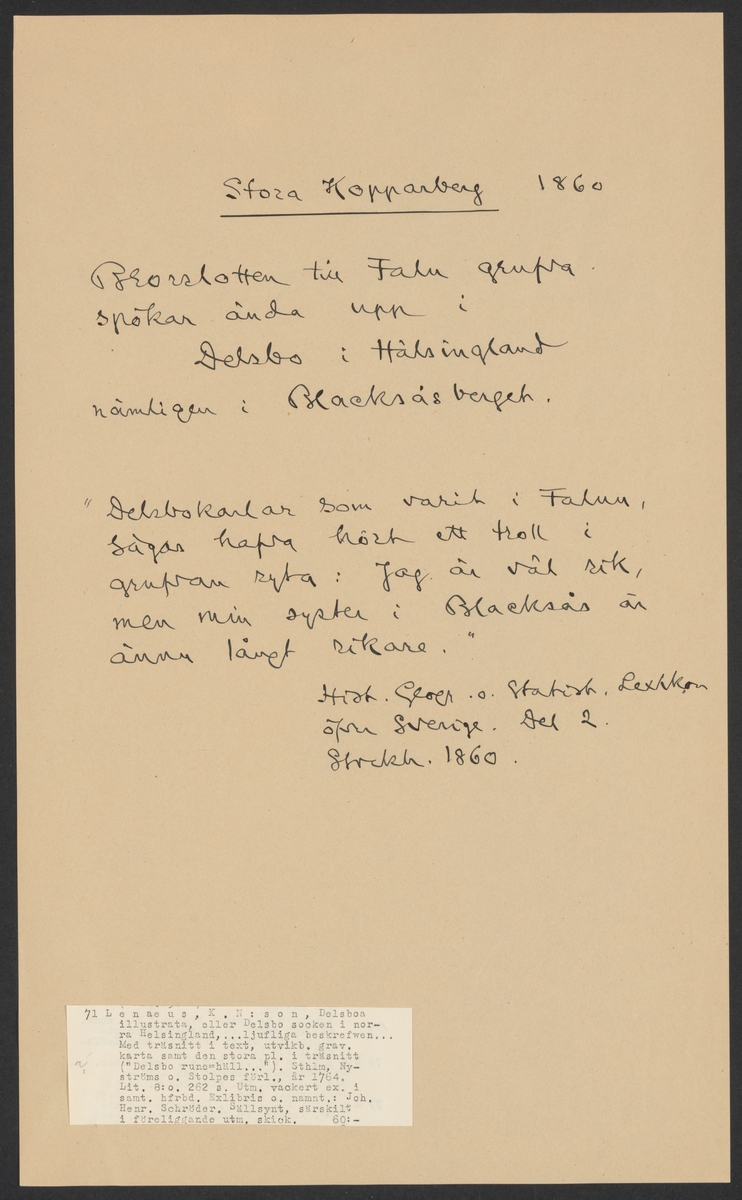 Stora Kopparberg 1860
till Falu grufva
spökar ända upp i
Delsbo i Hälsingland
nämligen i Blacksåsberget.
"Delsbokarlar som varit i Falun,
sägas hafva hört ett troll i
grufvan ryta: Jag är väl rik,
men min syster i Blacksås är
ännu långt rikare."
Hist. Geogr. o. Statist. Lexikon
öfver Sverige. Del 2.
Stockh. 1860.
71 L e n æ u s , K . N : s o n , Delsboa
illustrata, eller Delsbo socken i nor-
ra Helsingland,...ljufliga beskrefwen...
Med träsnitt i text, utvikb. grav.
karta samt den stora pl. i träsnitt
("Delsbo rune=häll..."). Sthlm, Ny-
ströms o. Stolpes förl., år 1764.
Lit. 8:o. 262 s. Utm. vackert ex. i
samt. hfrbd. Exlibris o. namnt.: Joh.
Henr. Schröder. Sällsynt, särskilt
i föreliggande utm. skick. 60:-